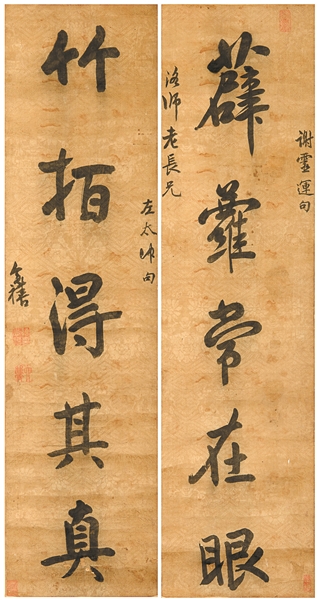 謝靈運句
薜蘿常在眼
洛師老長兄
左太冲句
竹栢得其真